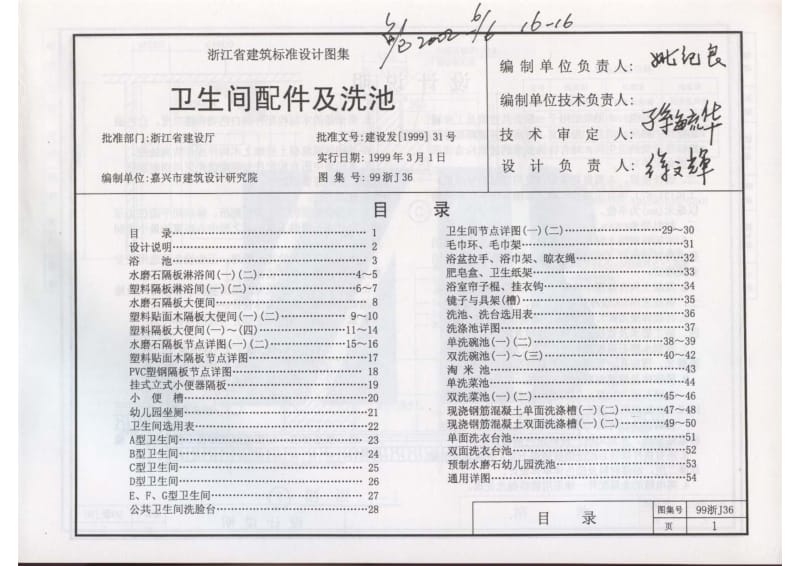 2002 6/6 16-16
浙江省建筑标准设计图集
卫生间配件及洗池
批准部门:浙江省建设厅
批准文号:建设发[1999]31号
实行日期:1999年3月1日
编制单位:嘉兴市建筑设计研究院
图 集 号:99浙J36
编制单位负责人:
编制单位技术负责人:
技 术 审 定 人:
设 计 负 责 人:
目 录
目 录 1
设计说明 2
浴 池 3
水磨石隔板淋浴间(一)(二) 4~5
塑料隔板淋浴间(一)(二) 6~7
水磨石隔板大便间 8
塑料贴面木隔板大便间(一)(二) 9~10
塑料隔板大便间(一)~(四) 11~14
水磨石隔板节点详图(一)(二) 15~16
塑料贴面木隔板节点详图 17
PVC塑钢隔板节点详图 18
挂式立式小便器隔板 19
小 便 槽 20
幼儿园坐厕 21
卫生间选用表 22
A型卫生间 23
B型卫生间 24
C型卫生间 25
D型卫生间 26
E、F、G型卫生间 27
公共卫生间洗脸台 28
卫生间节点详图(一)(二) 29~30
毛巾环、毛巾架 31
浴盆拉手、浴巾架、晾衣绳 32
肥皂盒、卫生纸架 33
浴室帘子棍、挂衣钩 34
镜子与具架(槽) 35
洗池、洗台选用表 36
洗涤池详图 37
单洗碗池(一)(二) 38~39
双洗碗池(一)~(三) 40~42
淘 米 池 43
单洗菜池 44
双洗菜池(一)(二) 45~46
现浇钢筋混凝土单面洗涤槽(一)(二) 47~48
现浇钢筋混凝土双面洗涤槽(一)(二) 49~50
单面洗衣台池 51
双面洗衣台池 52
预制水磨石幼儿园洗池 53
通用详图 54
目 录
图集号 99浙J36
页 1